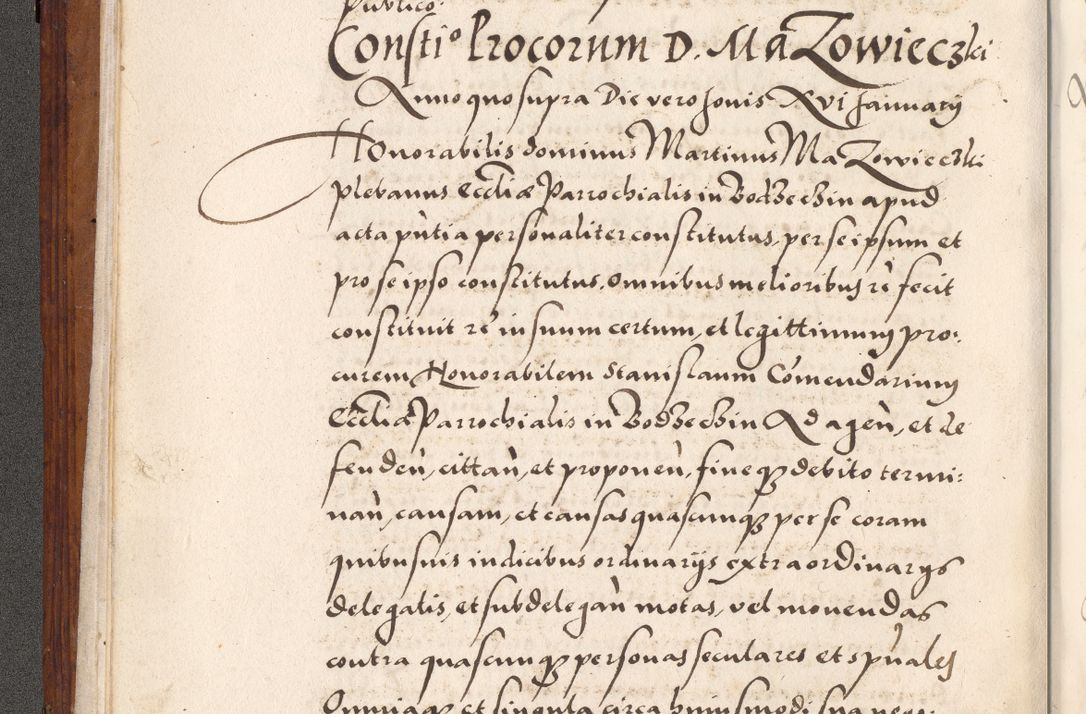 Publico.
Consti° Procorum D. MaZowieczki
Anno quo supra Die vero Jovis Xvi Januarij
Honorabilis dominus Martinus MaZowieczki
plebanus Eccliæ Parrochialis in Bodzeczin apud
acta pñtia personaliter constitutus, per se ipsum et
pro se ipso constitutus, omnibus melioribus rẽ fecit
constituit rẽ in suum certum, et legittimum pro:
curem Honorabilem Stanislaum Cõmendarium
Eccliæ Parrochialis in Bodzeczin Ad agen̄, et de
fenden̄, cittan̄, et proponen̄, fineqꝫ debito termi:
nan̄, causam, et causas quascunqꝫ per se coram
quibusuis iudicibus ordinarijs extraordinarijs
delegatis, et subdelegan̄ motas, vel mouendas
contra quascunqꝫ personas seculares et spūales
Omniaqꝫ et singula circa huiusmodi sua nego: